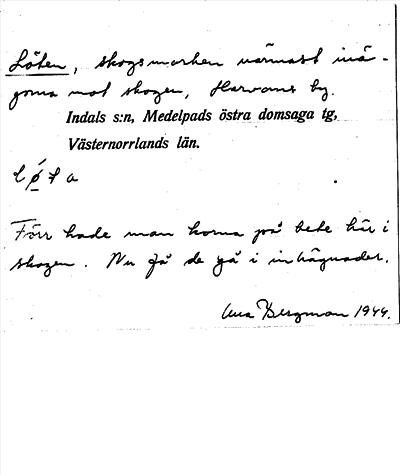 Löten, skogsmarken närmast inä-
gorna mot skogen, Harvoms by.
Indals s:n, Medelpads östra domsaga tg,
Västernorrlands län.
Förr hade man korna på bete här i
skogen. Nu få de gå i inhägnader.
Bergman 1944.